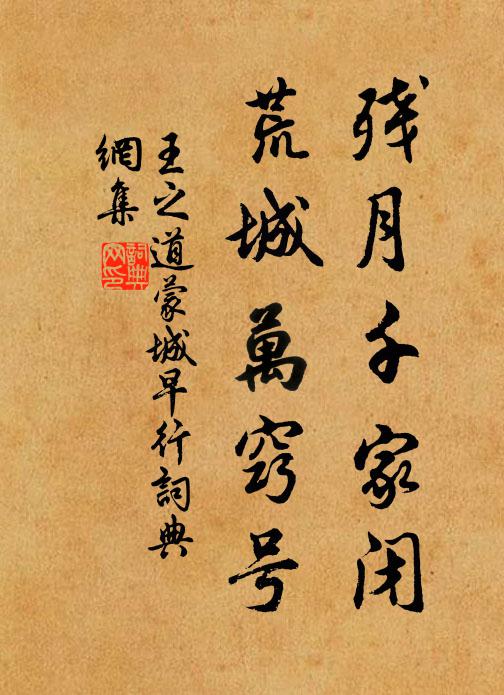 残月千家闭
荒城萬窍号
王之道蒙城早行詞典
網集
詞典
网印